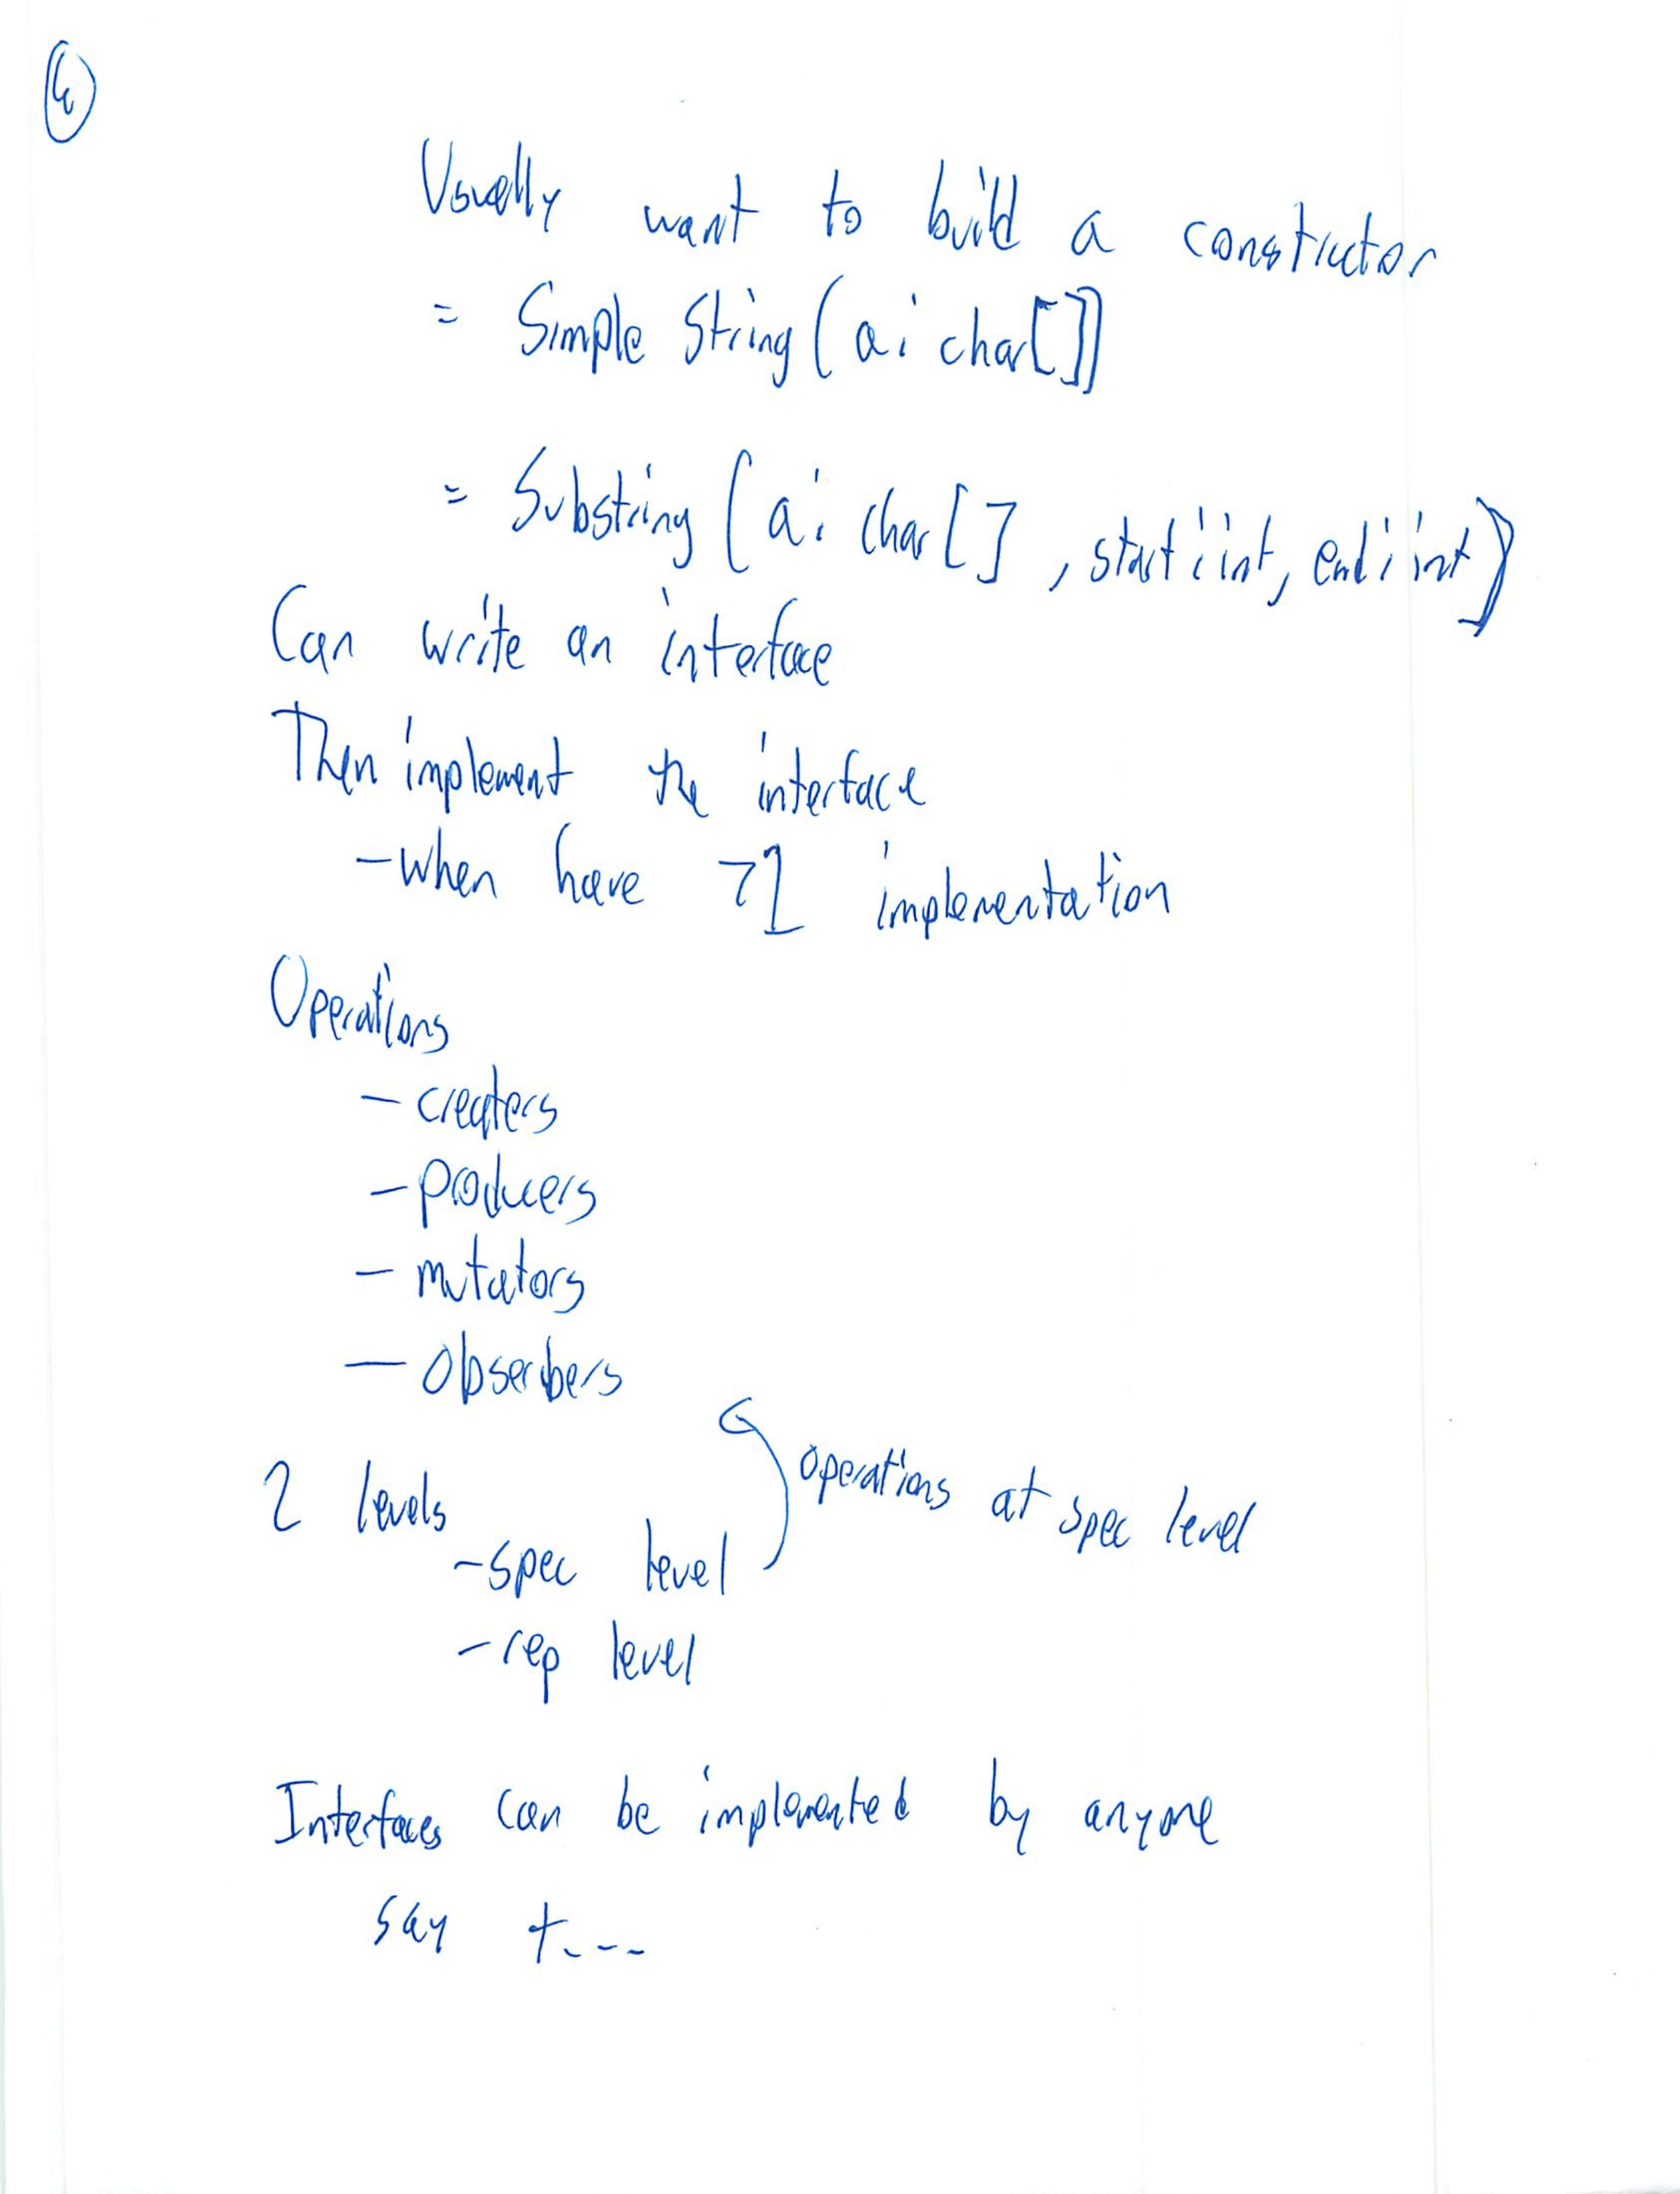 4
Usually want to build a constructor
= Simple String (a: char[])
= Substring (a: char[], start: int, end: int)
Can write an interface
Then implement the interface
- when have >1 implementation
Operations
- creaters
- producers
- mutators
- obserbers
2 levels
operations at spec level
- spec level
- rep level
Interfaces can be implemented by anyone
say t....